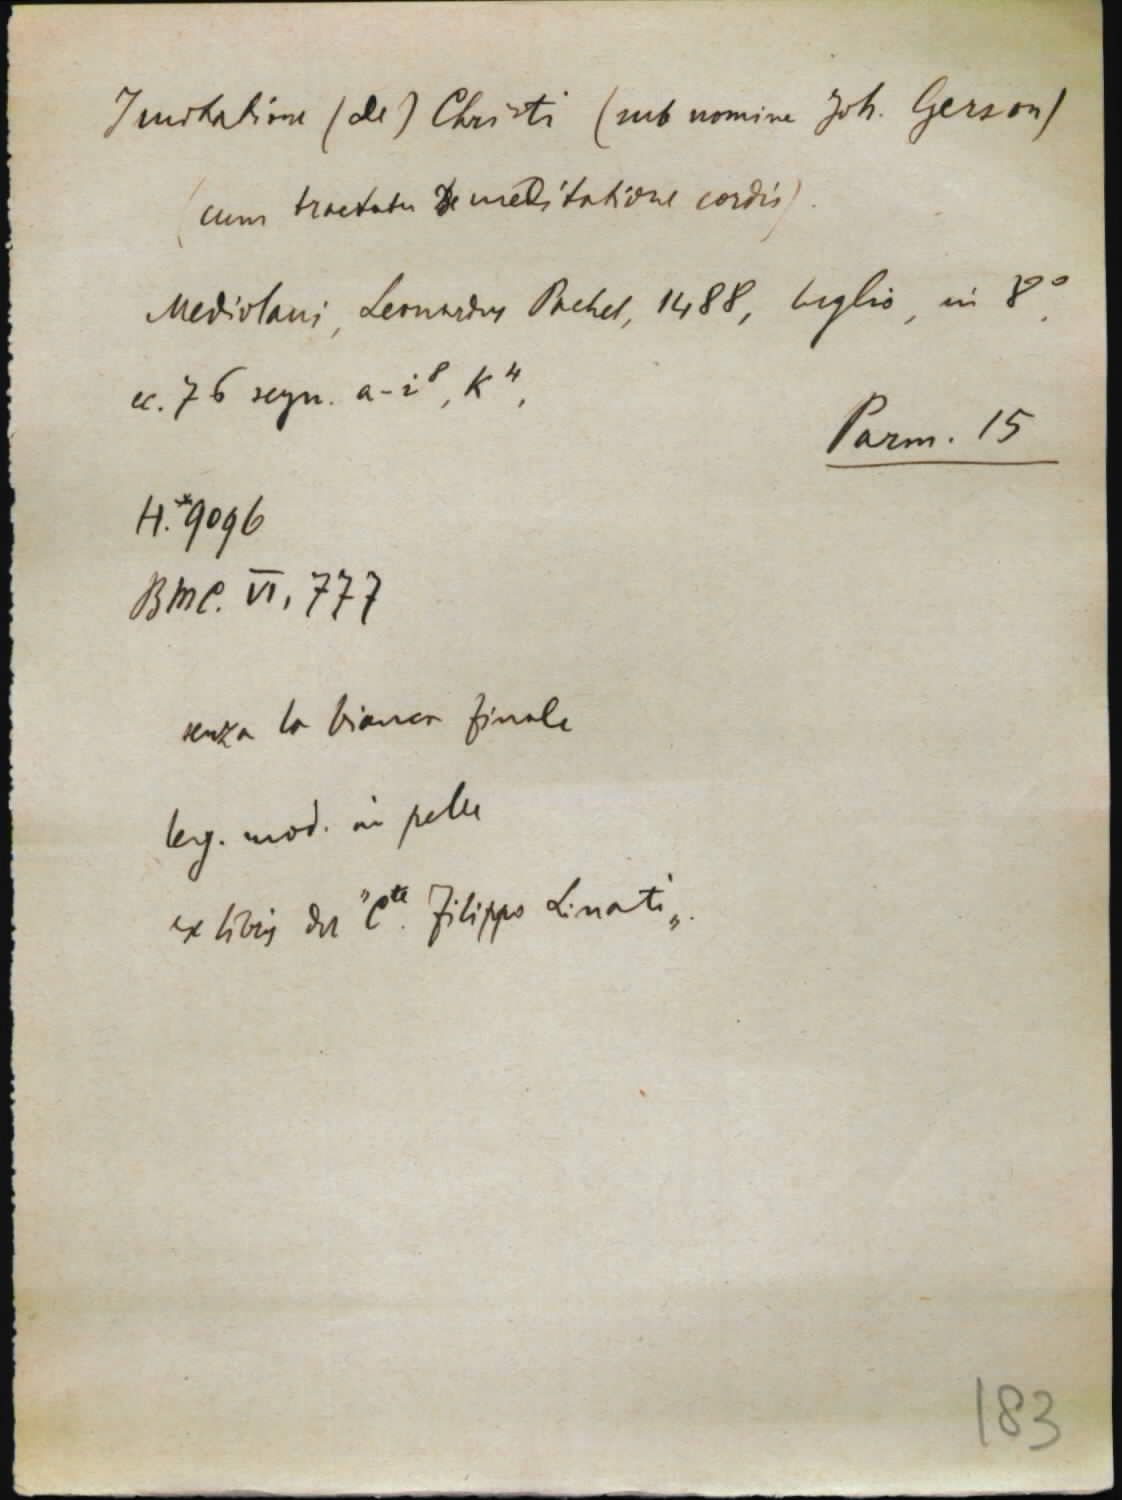 Imitatione (de) Christi (sub nomine Joh. Gerson)
(cum tractatu De meditatione cordis).
Mediolani, Leonardus Pachel, 1488, luglio, in 8°.
cc. 76 segn. a-i⁸, K⁴.
Parm. 15
H.*9096
BMC. VI, 777
senza la bianca finale
leg. mod. in pelle
ex libris del "Cte. Filippo Linati„.
183